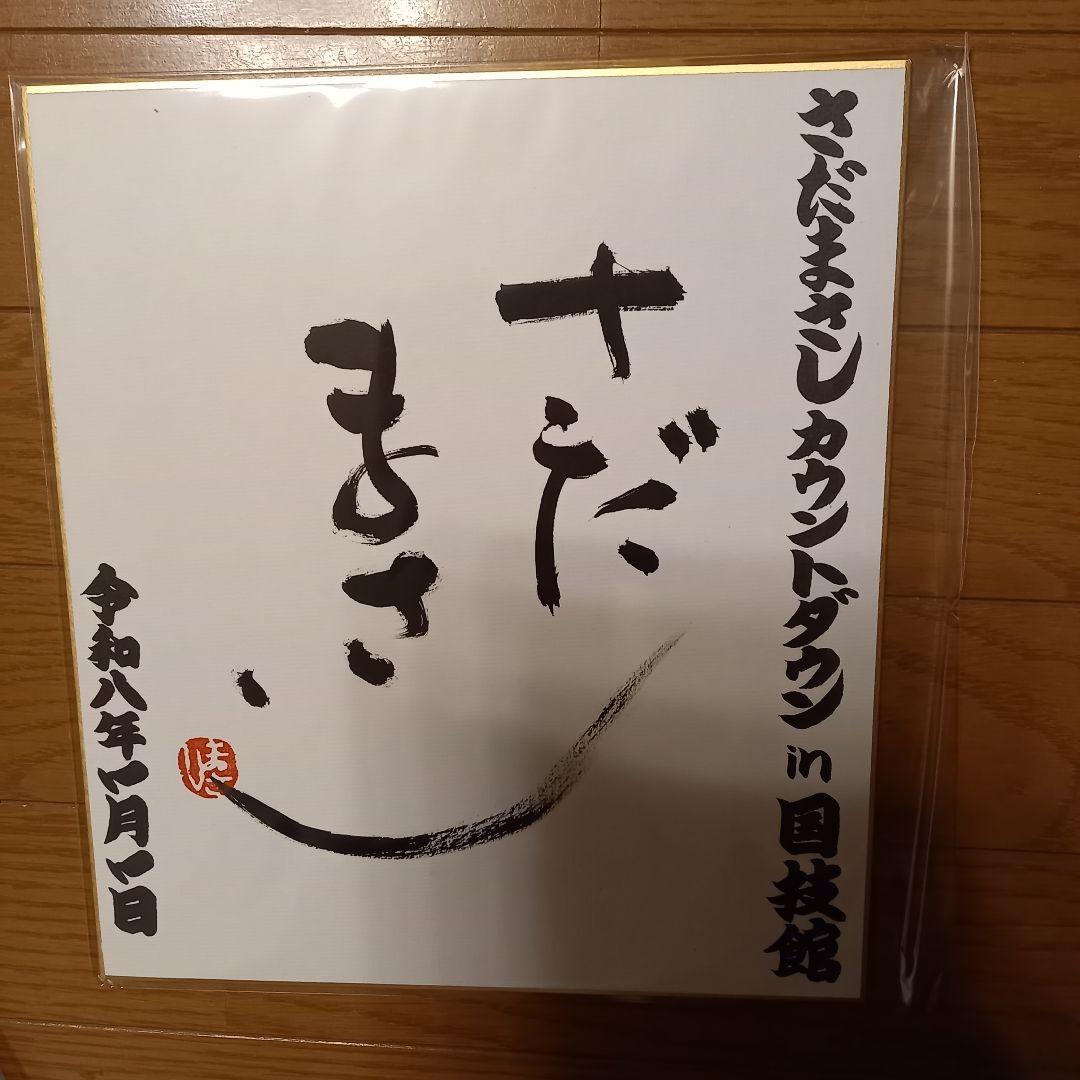 さだまさしカウントダウン in 国技館
さだ
まさし
令和八年一月一日